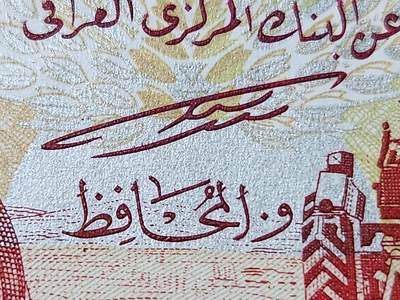 عن البنك المركزي العراقي
و. المحافظ